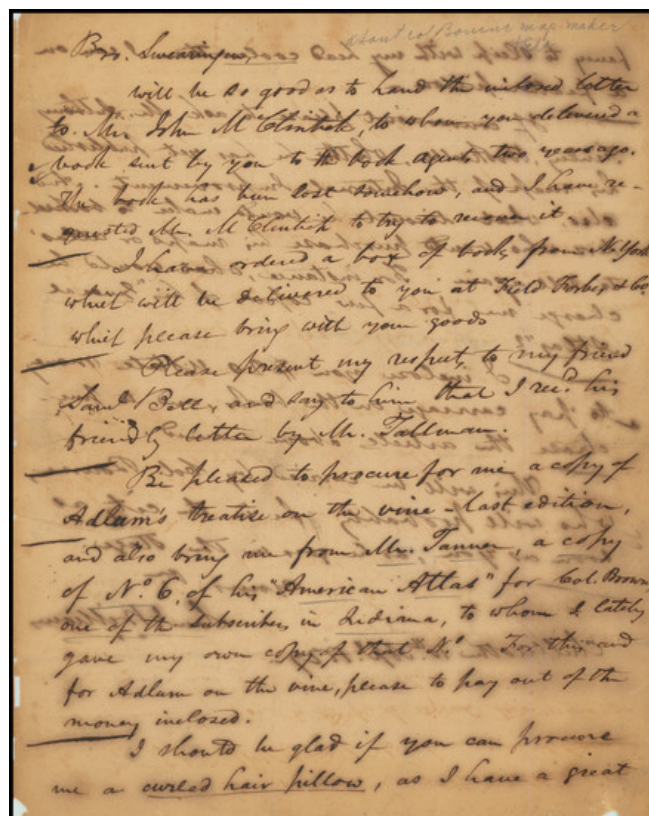 about Col Bourne map maker
Bro. Swearingen,
will be so good as to hand the inclosed letter
to Mr John McClintick, to whom you delivered a
book sent by you to the book agents two years ago.
The book has been lost somehow, and I have re-
quested Mr. McClintick to try to recover it.
I have ordered a box of books from N. York
which will be delivered to you at Field Forbes & Co.
which please bring with your goods
Please present my respects to my friend
Saml Bell, and say to him that I recd. his
friendly letter by Mr. Tallman.
Be pleased to procure for me a copy of
Adlum's treatise on the vine - last edition,
and also bring me from Mr. Tanner, a copy
of No. 6, of his "American Atlas" for Col. Brown,
one of the subscribers in Indiana, to whom I lately
gave my own copy of that No. For this and
for Adlum on the vine, please to pay out of the
money inclosed.
I should be glad if you can procure
me a curled hair pillow, as I have a great